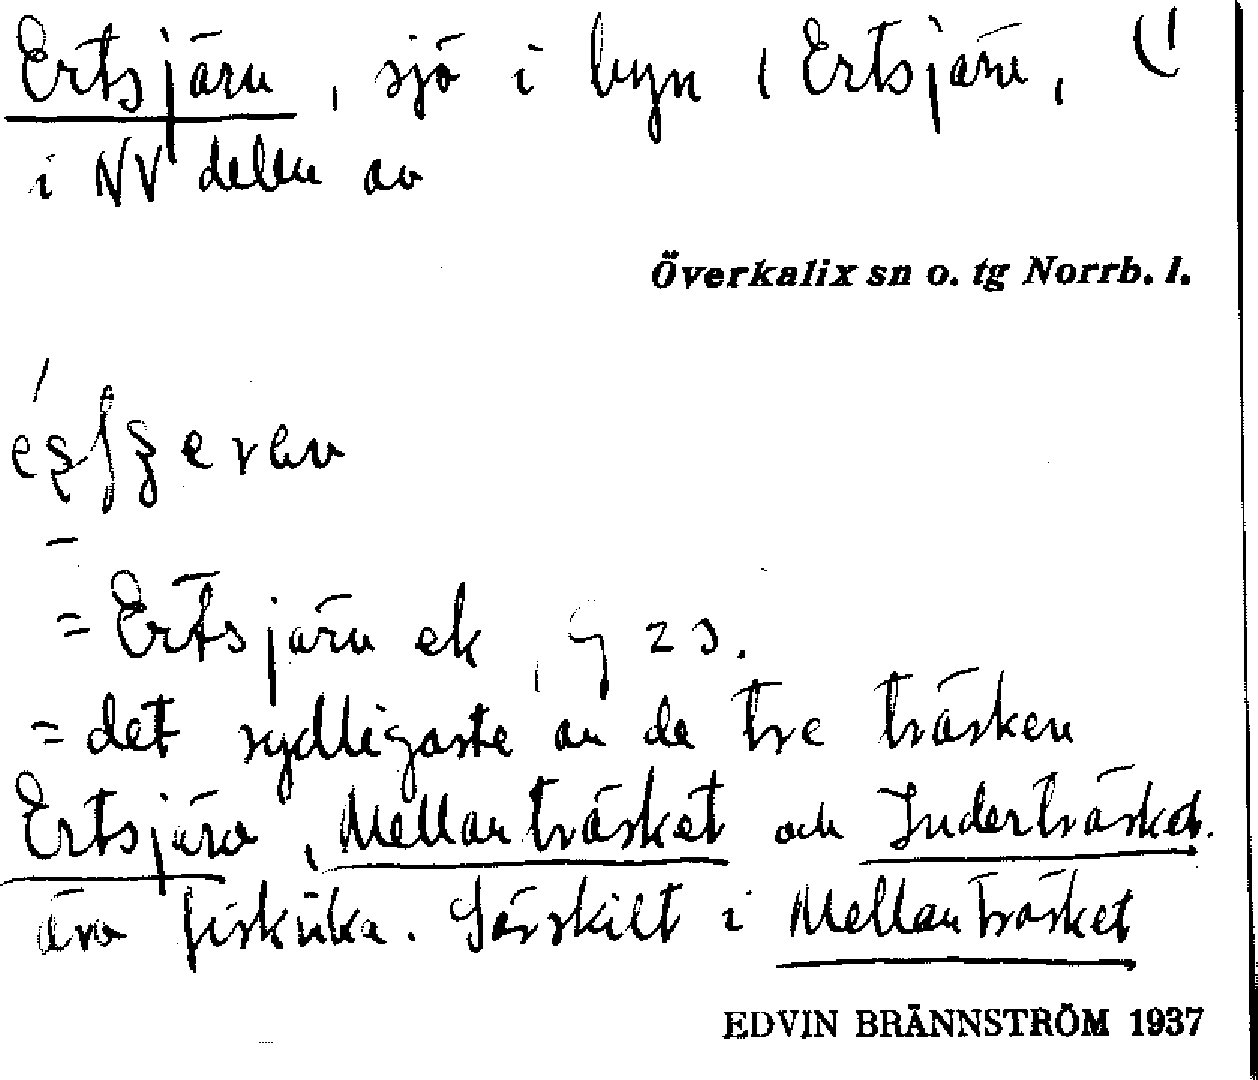 Ertsjärv, sjö i byn Ertsjärv,
i NV delen av
Överkalix sn o. tg Norrb. l.
= Ertsjärv ek
= det sydligaste av de tre träsken
Ertsjärv, Mellanträsket och Inderträsket.
äro fiskrika. Särskilt i Mellanträsket
EDVIN BRÄNNSTRÖM 1937